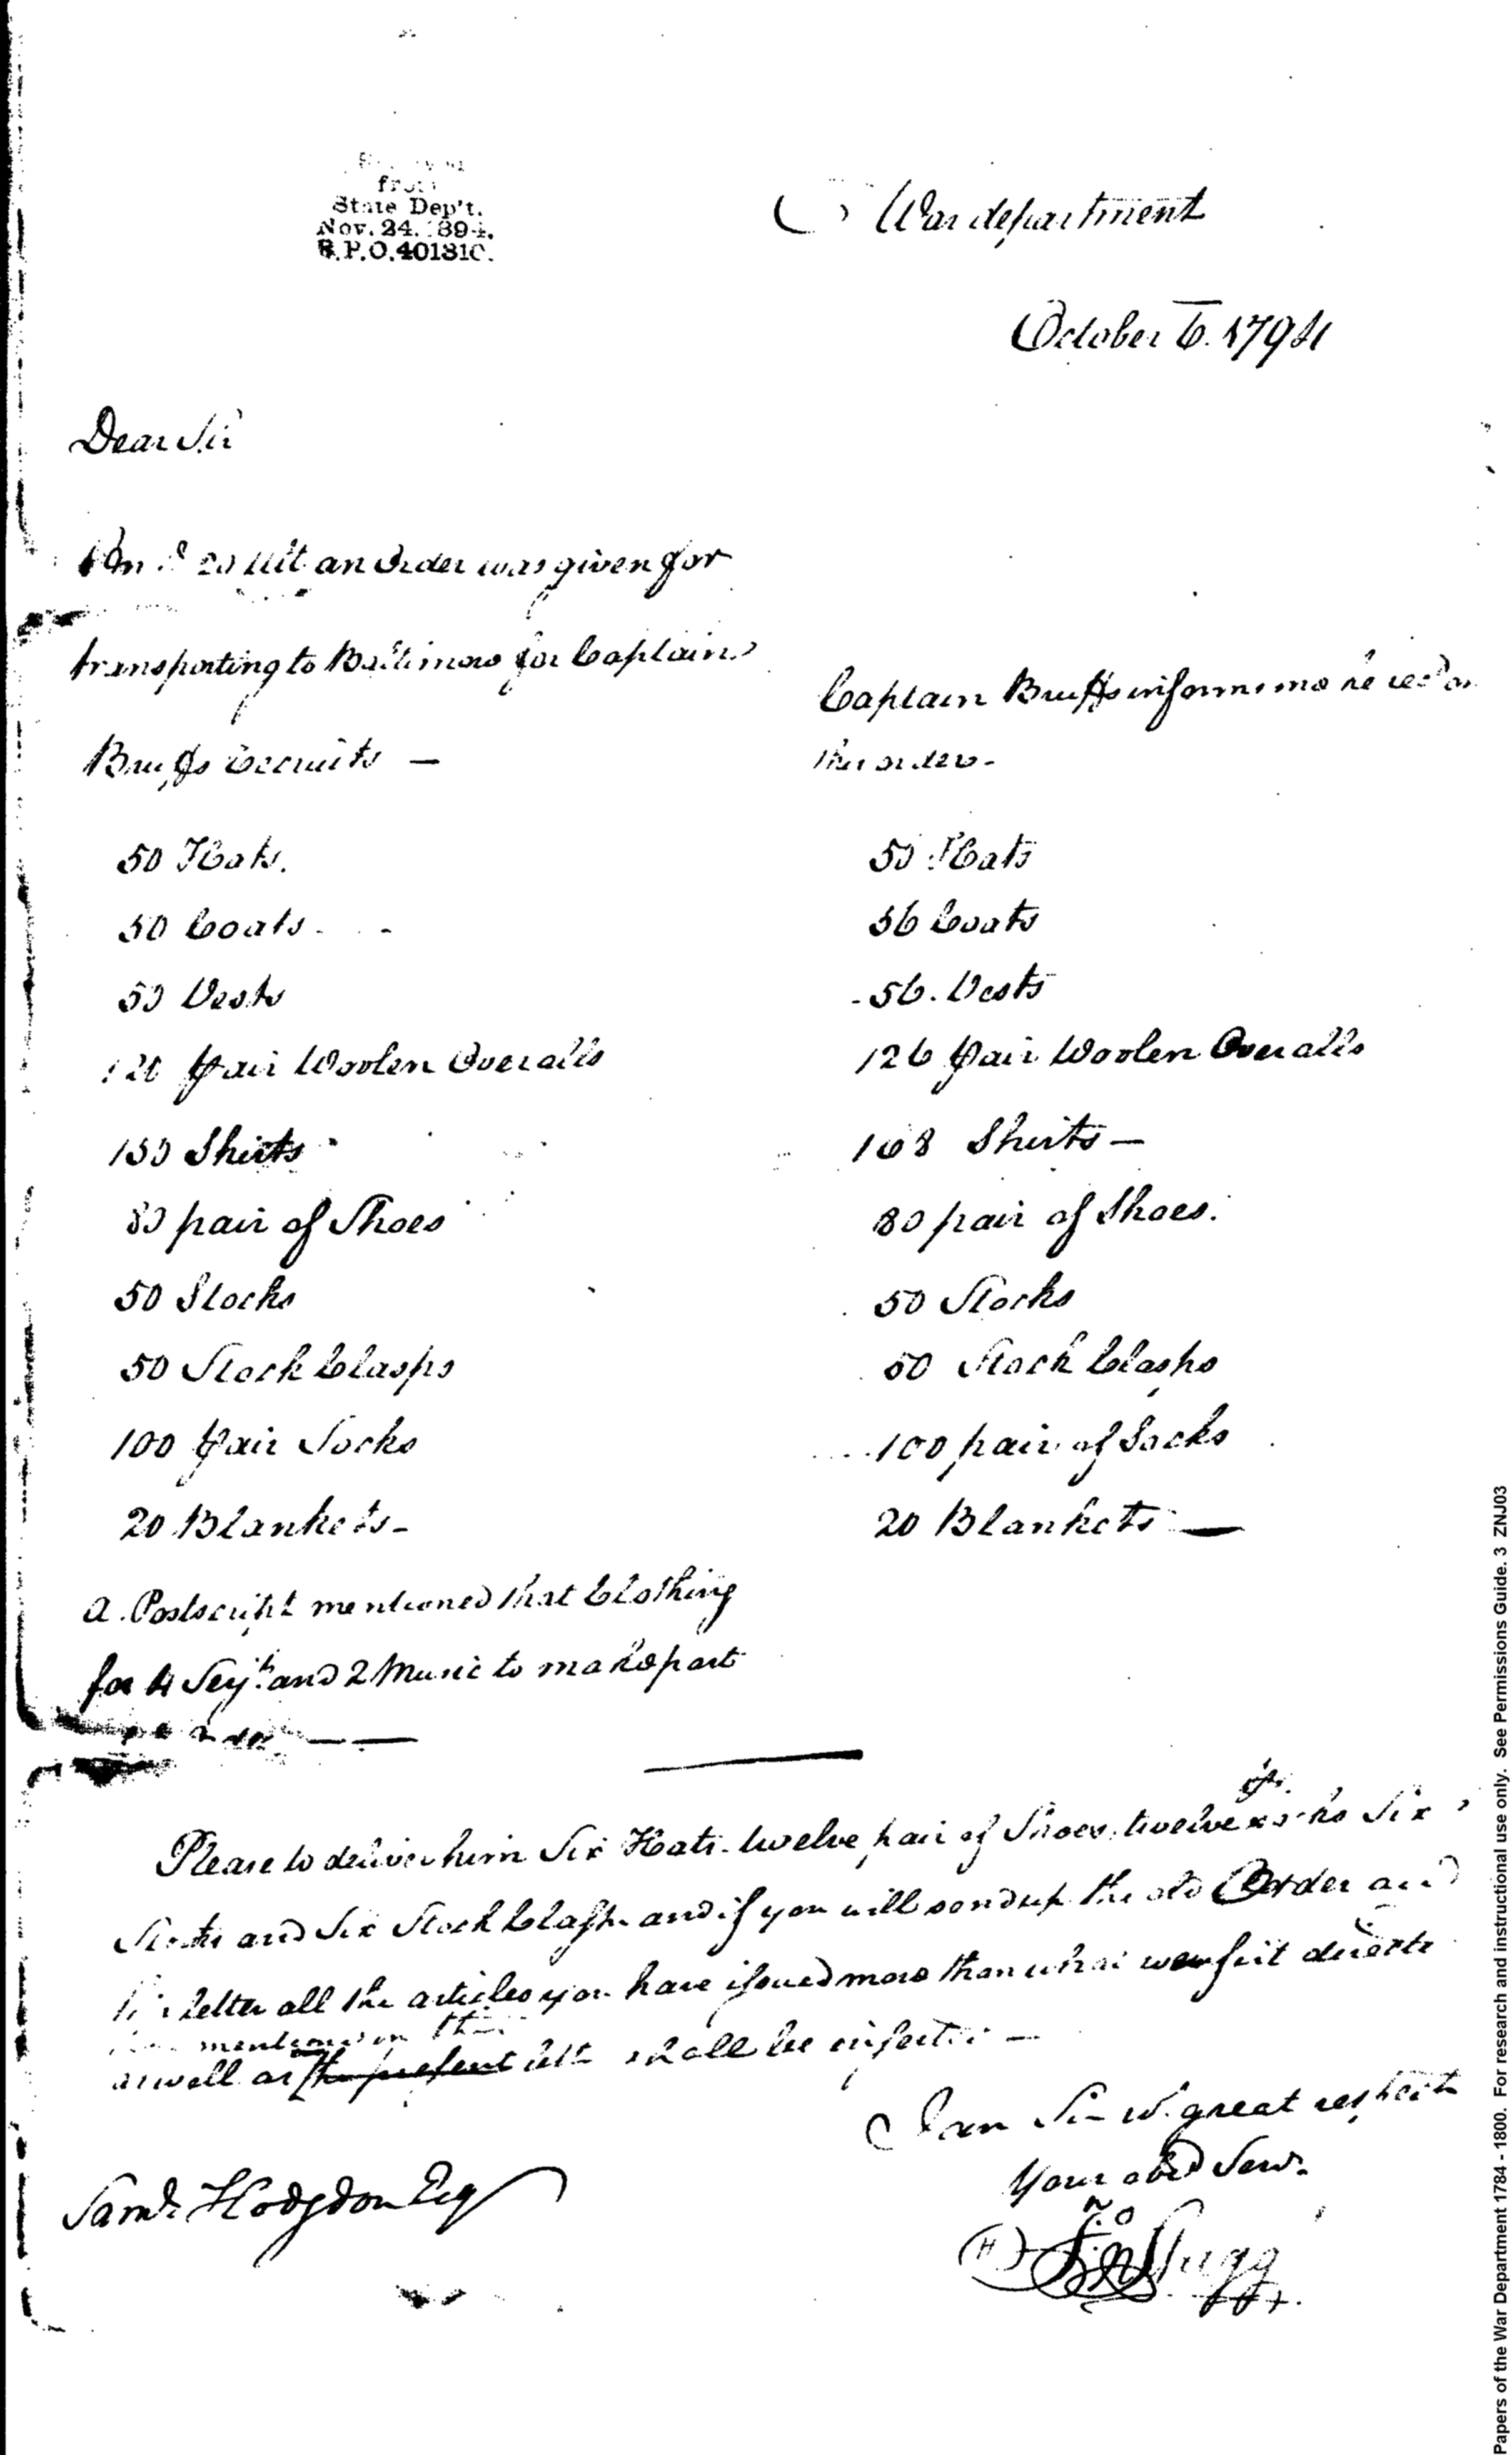 from
State Dep't.
Nov. 24. 1894.
R.P.O. 401310.
War department
October 6. 1794
Dear Sir
On 20 Ult an Order was given for
transporting to Baltimore for Captain
Bruffs Recruits —
50 Hats.
50 Coats
50 Vests
120 pair Woolen Overalls
150 Shirts
80 pair of Shoes
50 Stocks
50 Stock Clasps
100 pair Socks
20 Blankets -
a Postscript mentioned that Clothing
for 4 Serjts. and 2 Music to make part
Captain Bruffs informs me he recd on
this order -
50 Hats
56 Coats
56. Vests
126 pair Woolen Overalls
168 Shirts —
80 pair of Shoes.
50 Stocks
50 Stock Clasps
100 pair of Socks
20 Blankets —
Please to deliver him Six Hats. twelve pair of Shoes, twelve pr. socks Six
Stocks and Six Stock Clasps and if you will send up the old Order and
letter all the articles you have issued more than what was first directed
mentioned in the
as well as the present lett shall be inserted —
I am Sir w. great respect
Your obed Serv.
Jno Stagg
Saml. Hodgdon Esq
Papers of the War Department 1784 - 1800. For research and instructional use only. See Permissions Guide. 3 ZNJ03